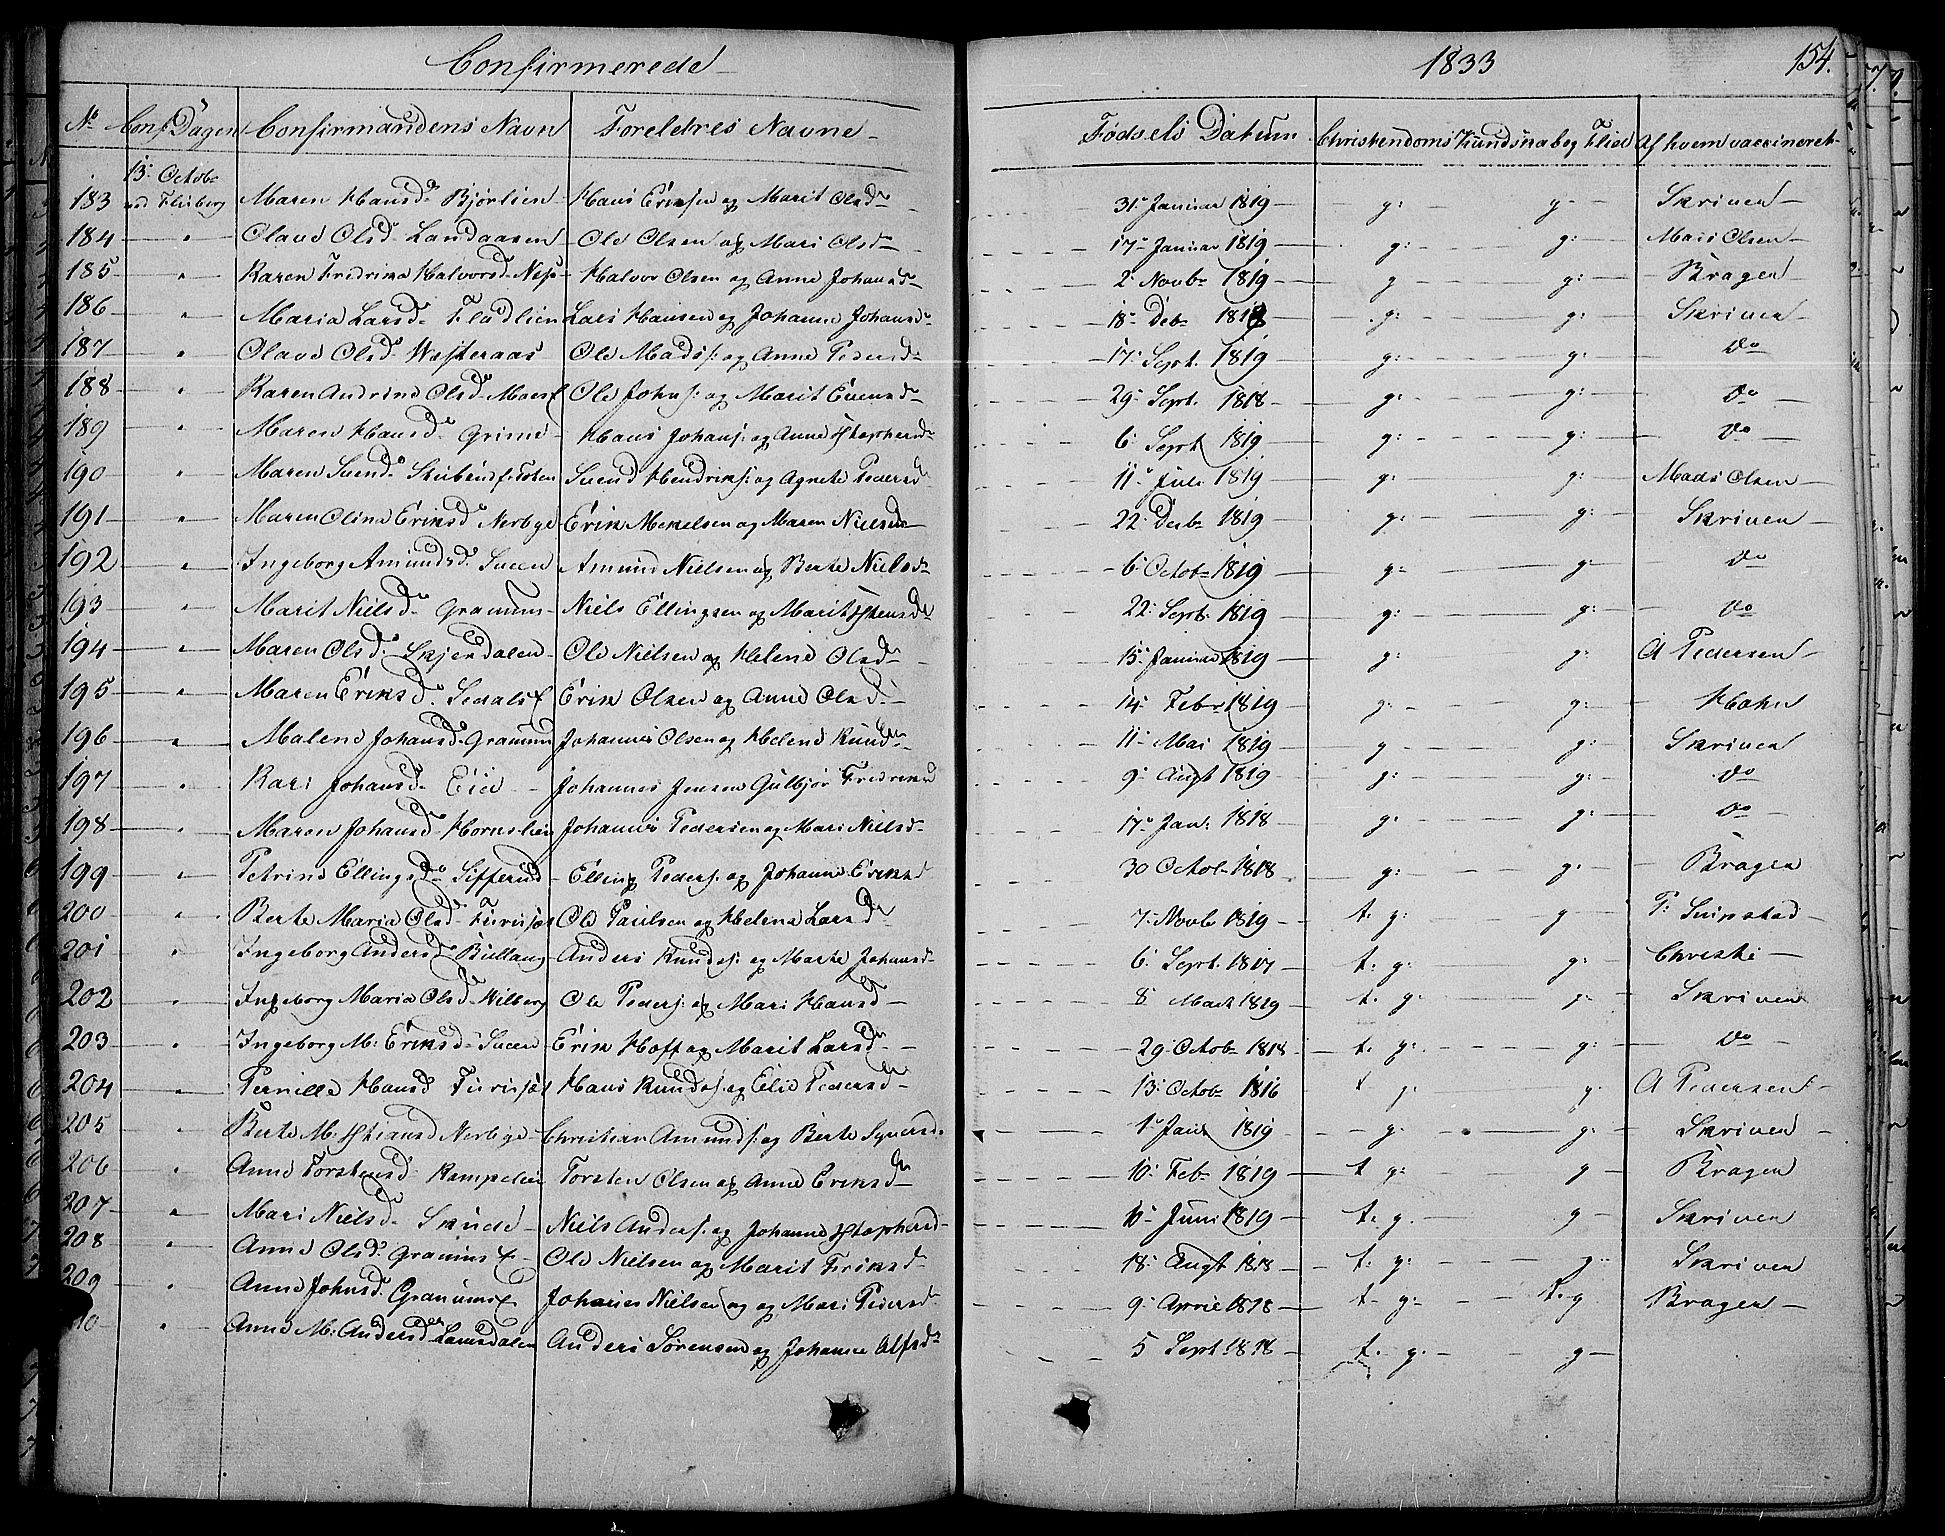 Confirmerede 1833 154.
No Conf: Dagen Confirmandens Navn Foreldres Navne Fødsels Datum Christendoms Kundskab og Flid Af hvem vaccineret
13de Octob.
183 Maren Hansd. Bjørlien Hans Eriksen og Marit Olsd. 31 Januar 1819 g: g Skriven
184 " Olave Olsd. Landaasen Ole Olsen og Mari Olsd. 17 Januar 1819 g: g: Mads Olsen
185 " Karen Fredrikke Halvorsd. Halvor Olsen og Anne Johansd. 2 Novbr 1819 g g: Bragen
186 " Maria Larsd. Fladlien Lars Hansen og Johanne Johansd. 18 Debr g: g: Skriven
187 " Olave Olsd. Westeraas Ole Mads: og Anne Pedersd. 17 Sept. 1819 g: g: Do
188 " Karen Andrine Olsd. Ole Johns: og Marit Evensd. 29 Sept. 1818 g: g: Do
189 " Maren Hansd. Grime Hans Johans: og Anne Stephensd. 6 Sept 1819 g: g: Do
190 " Maren Svend. Svend Hendriks: og Agnete Pedersd. 11 Juli 1819 g: g: Mads Olsen
191 " Maren Oline Eriksd. Nerbye Erik Mekelsen og Maren Nielsd. 22 Debr 1819 g: g: Skriven
192 " Ingeborg Amundsd. Sveen Amund Nielsen og Berte Nielsd. 6 Octobr 1819 g: g: Do
193 " Marit Nielsd. Niels Ellingsen og Marit Stensd. 22 Sept. 1819 g: g: Do
194 " Maren Olsd. Skjerdalen Ole Nielsen og Helene Olsd. 15 Januar 1819 g: g: A Pedersen
195 " Maren Eriksd. Erik Olsen og Anne Olsd. 14 Febr 1819 g: g: Hohn
196 " Malene Johansd. Johannes Olsen og Helene Knudsd. 11 Mai 1819 g g: Skriven
197 " Kari Johansd. Eid Johannes Jensen Gulbjør Fredriksd. 9 Augt 1819 g: g: Do
198 " Maren Johansd. Hornslien Johannes Pedersen og Mari Nielsd. 17 Jan: 1818 g: g: Do
199 " Petrine Ellingsd. Sifferud Elling Peders: og Johanne Eriksd. 30 Octob. 1818 g: g: Bragen
200 " Berte Maria Olsd. Ole Paulsen og Helene Larsd. 7 Novb. 1819 t. g: g P:
201 " Ingeborg Andersd. Anders Knuds: og Marte Johansd. 6 Sept. 1817 t: g: g: Christi
202 " Ingeborg Maria Olsd. Wilberg Ole Peders: og Mari Hansd. 8 Mart 1819 t. g: g: Skriven
203 " Ingeborg M: Eriksd. Sveen Erik Hoff og Marit Larsd. 29 Octobr 1818 t. g: g: Do
204 " Pernille Hansd. Hans Knuds: og Eilie Pedersd. 13 Octobr 1816 t g: g: A Pedersen
205 " Berte M. Stiansd. Nerbye Christian Amunds: og Berte Syversd. 1 Jan 1819 g: g: Skriven
206 " Anne Torstensd. Kampelien Torsten Olsen og Anne Eriksd. 10 Feb 1819 t g: g Bragen
207 " Mari Nielsd. Niels Anders: og Johanne Stephensd. 10 Juni 1819 t. g. g Skriven
208 " Anne Olsd. Ole Nielsen og Marit Eriksd. 18 Augt 1818 t. g: g: Skriven
209 " Anne Johnsd. Johannes Nielsen og Mari Pedersd. 9 April 1818 t. g: t. g Bragen
" Anne M: Andersd. Anders Sørensen og Johanne Alfsd. 5 Sept 1818 t. g. g